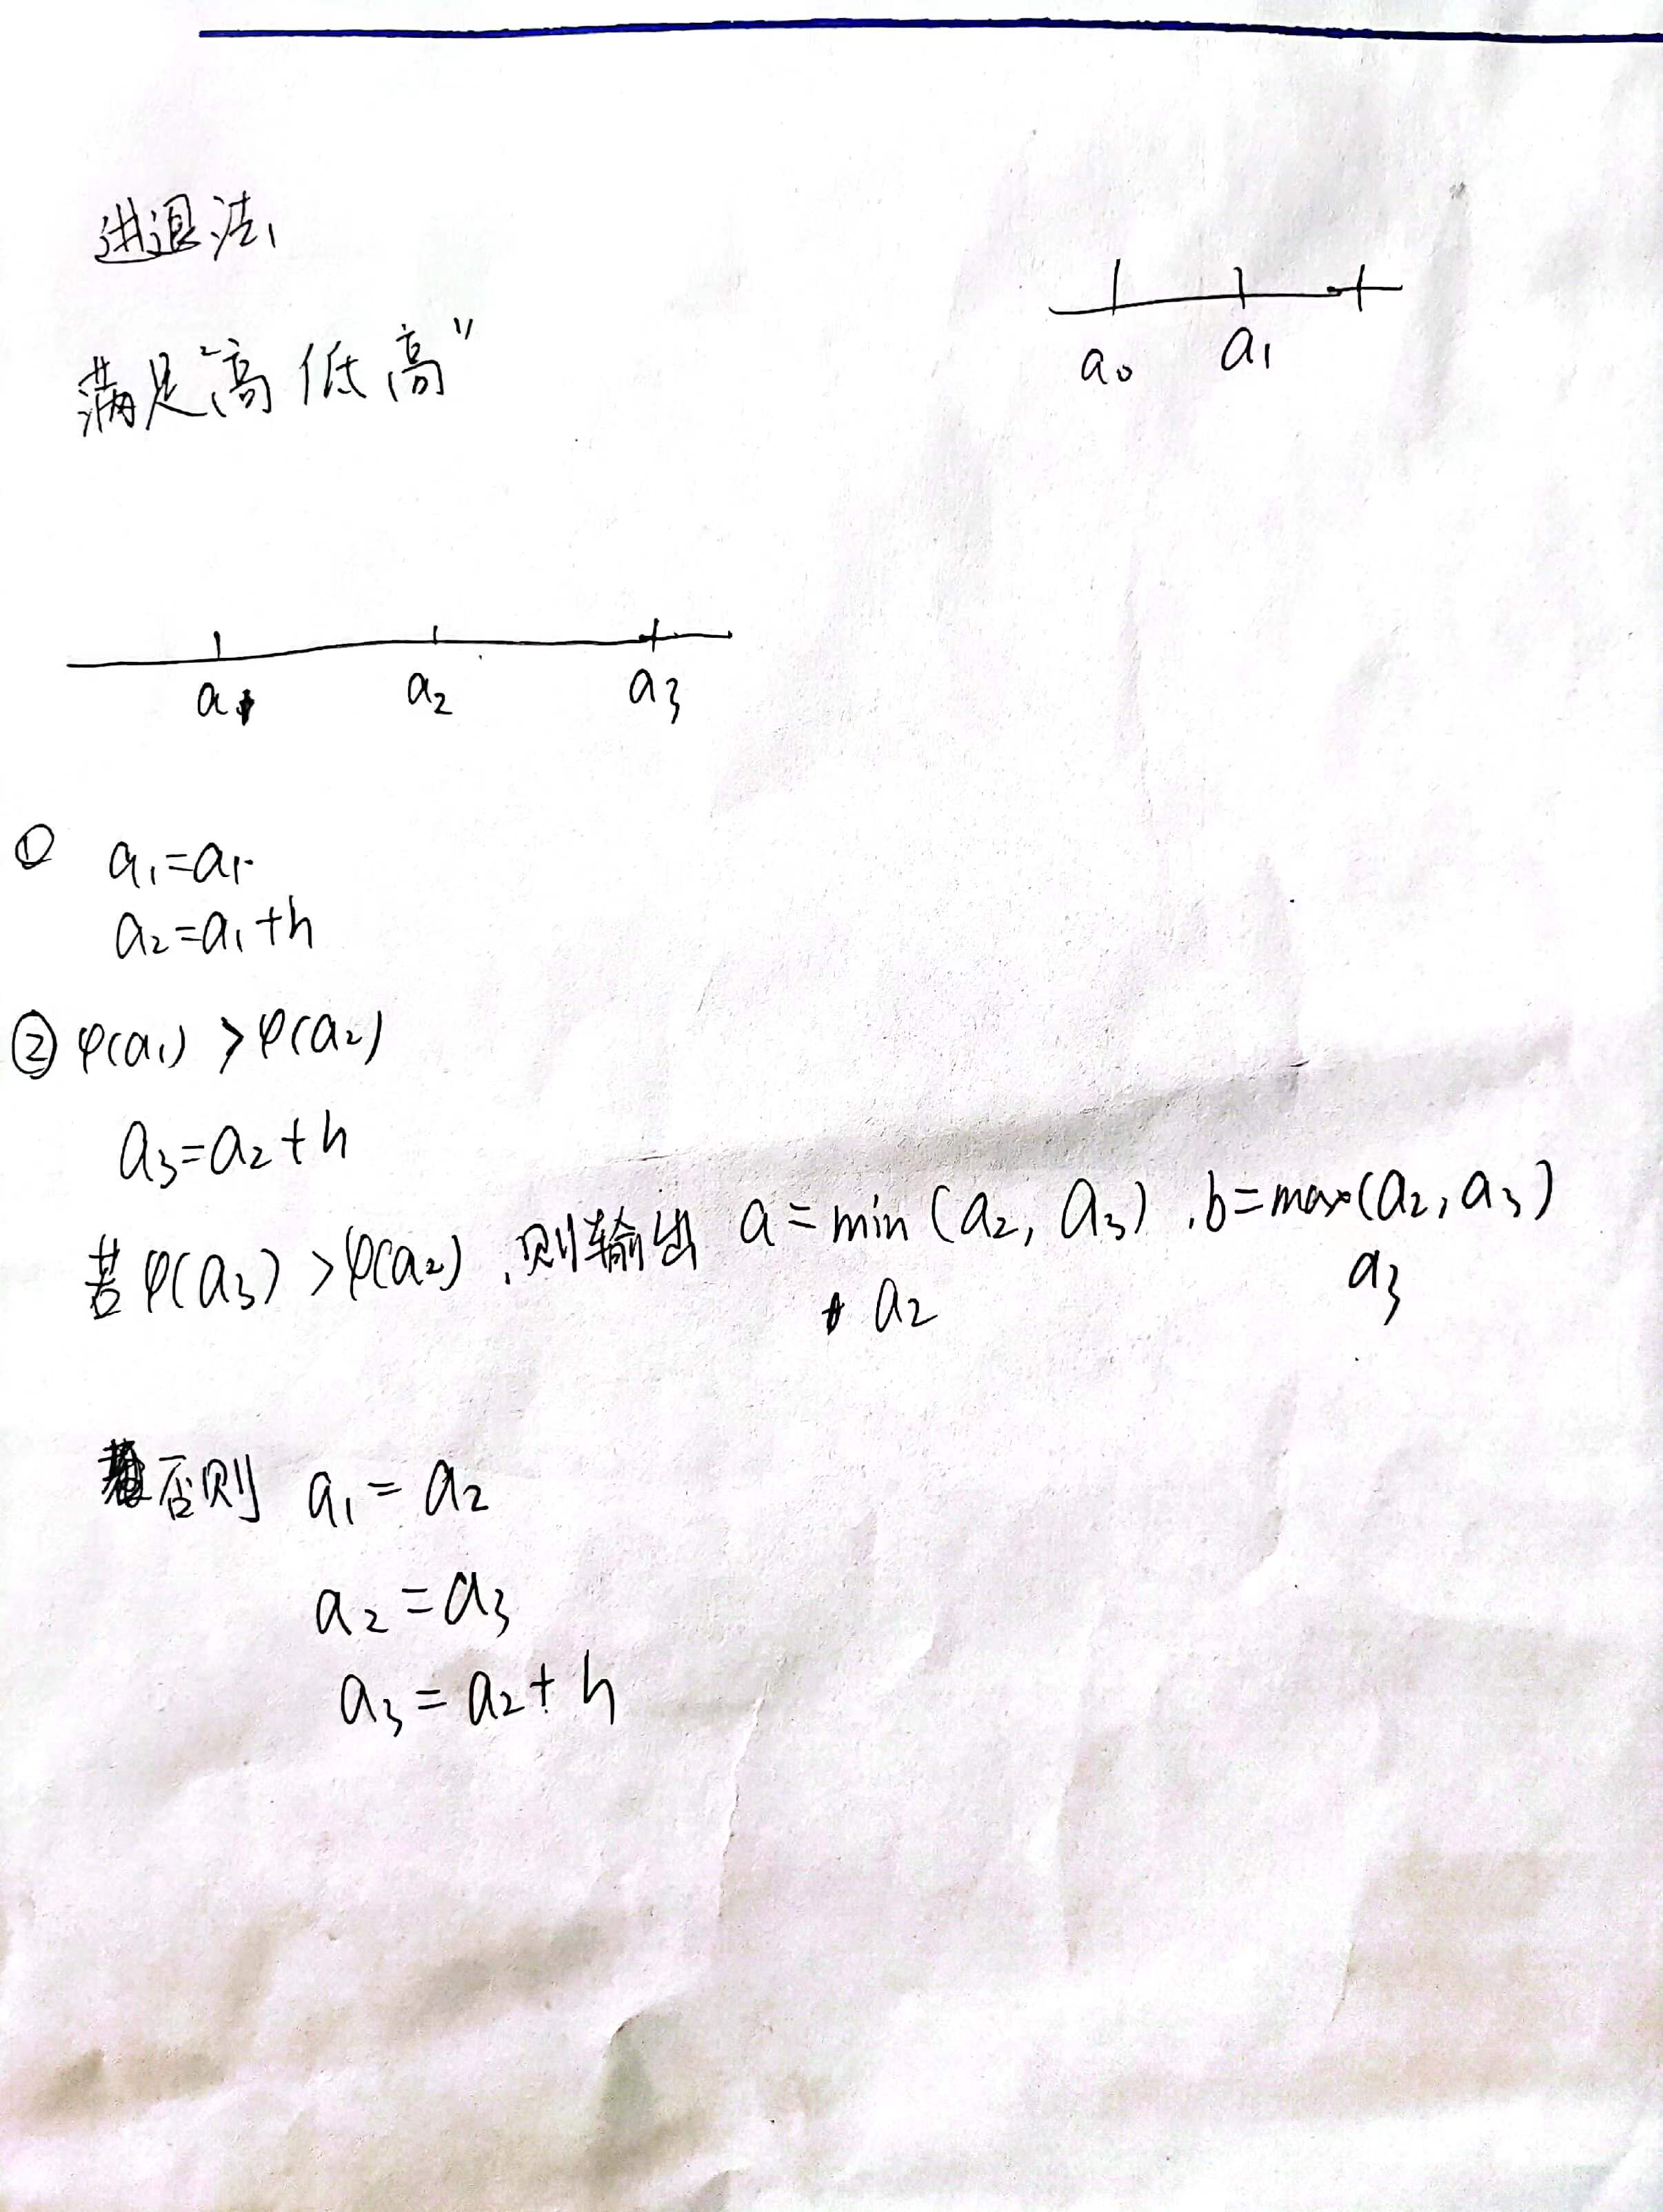 进退法
满足"高低高"
a₀ a₁
a₁ a₂ a₃
① a₁=a₁
a₂=a₁+h
② φ(a₁) > φ(a₂)
a₃=a₂+h
若 φ(a₃) > φ(a₂),则输出 a=min(a₂, a₃),b=max(a₂, a₃)
a₂ a₃
否则 a₁=a₂
a₂=a₃
a₃=a₂+h